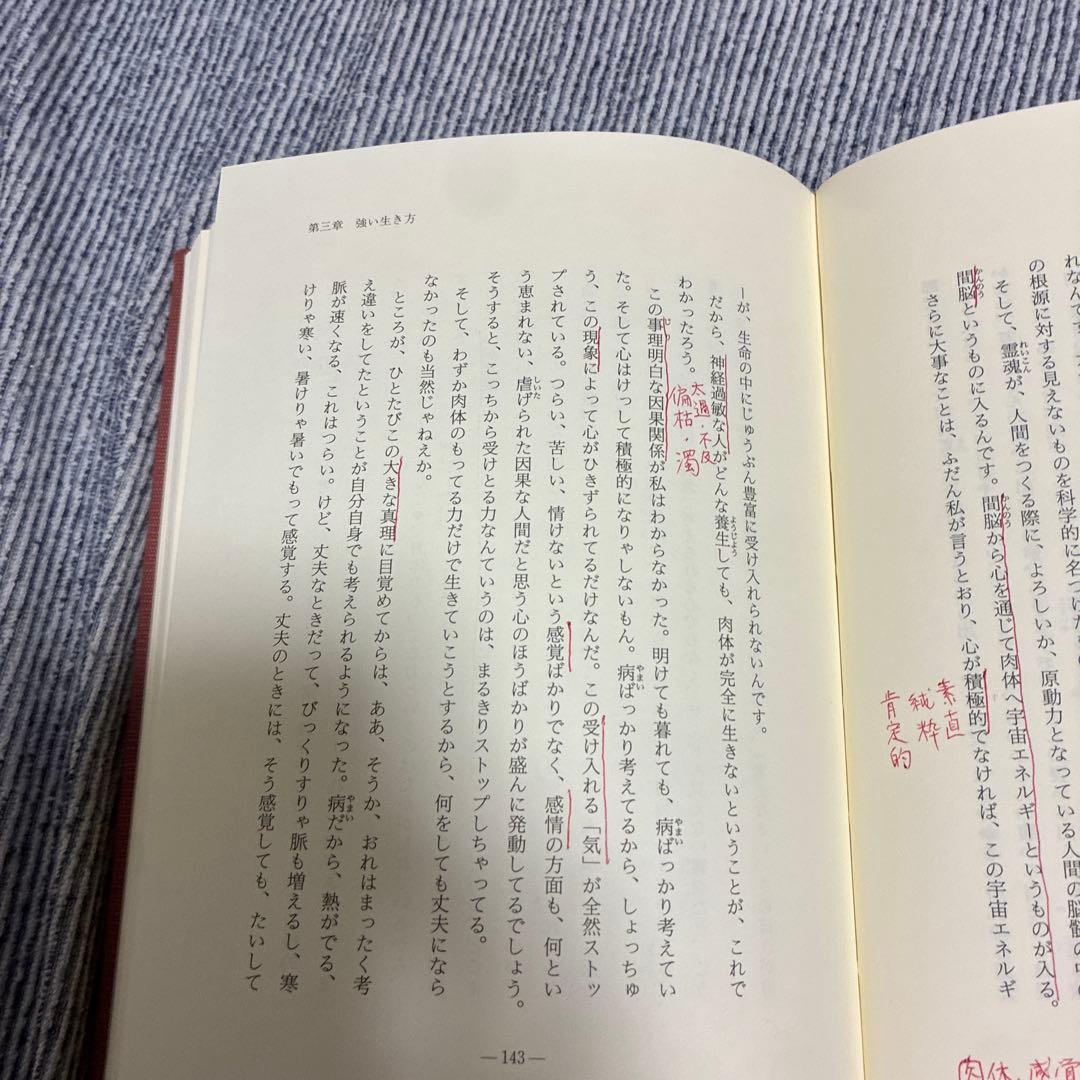 れなんです。
の根源に対する見えないものを科学的に名づけた
そして、霊魂が、人間をつくる際に、よろしいか、原動力となっている人間の脳髄の中の
間脳というものに入るんです。間脳から心を通じて肉体へ宇宙エネルギーというものが入る。
さらに大事なことは、ふだん私が言うとおり、心が積極的でなければ、この宇宙エネルギ
素直
純粋
肯定的
肉体、感覚
第三章 強い生き方
ーが、生命の中にじゅうぶん豊富に受け入れられないんです。
だから、神経過敏な人がどんな養生しても、肉体が完全に生きないということが、これで
わかったろう。
太過・不及
偏枯・濁
この事理明白な因果関係が私はわからなかった。明けても暮れても、病ばっかり考えてい
た。そして心はけっして積極的になりゃしないもん。病ばっかり考えてるから、しょっちゅ
う、この現象によって心がひきずられてるだけなんだ。この受け入れる「気」が全然ストッ
プされている。つらい、苦しい、情けないという感覚ばかりでなく、感情の方面も、何とい
う恵まれない、虐げられた因果な人間だと思う心のほうばかりが盛んに発動してるでしょう。
そうすると、こっちから受けとる力なんていうのは、まるきりストップしちゃってる。
そして、わずか肉体のもってる力だけで生きていこうとするから、何をしても丈夫になら
なかったのも当然じゃねえか。
ところが、ひとたびこの大きな真理に目覚めてからは、ああ、そうか、おれはまったく考
え違いをしてたということが自分自身でも考えられるようになった。病だから、熱がでる、
脈が速くなる、これはつらい。けど、丈夫なときだって、びっくりすりゃ脈も増えるし、寒
けりゃ寒い、暑けりゃ暑いでもって感覚する。丈夫のときには、そう感覚しても、たいして
—143—